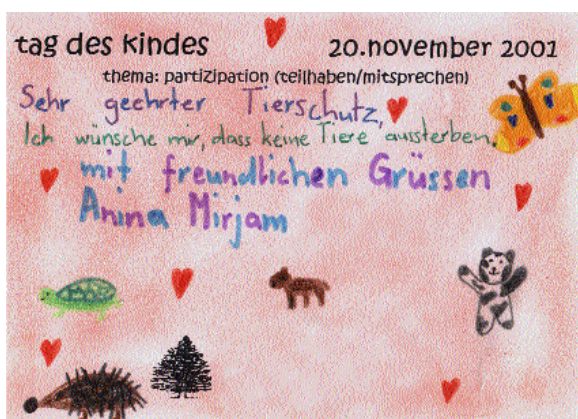 tag des kindes 20.november 2001
thema: partizipation (teilhaben/mitsprechen)
Sehr geehrter Tierschutz,
Ich wünsche mir, dass keine Tiere aussterben.
mit freundlichen Grüssen
Anina Mirjam